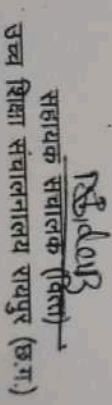 सहायक संचालक (वित्त)
उच्च शिक्षा संचालनालय रायपुर (छ.ग.)